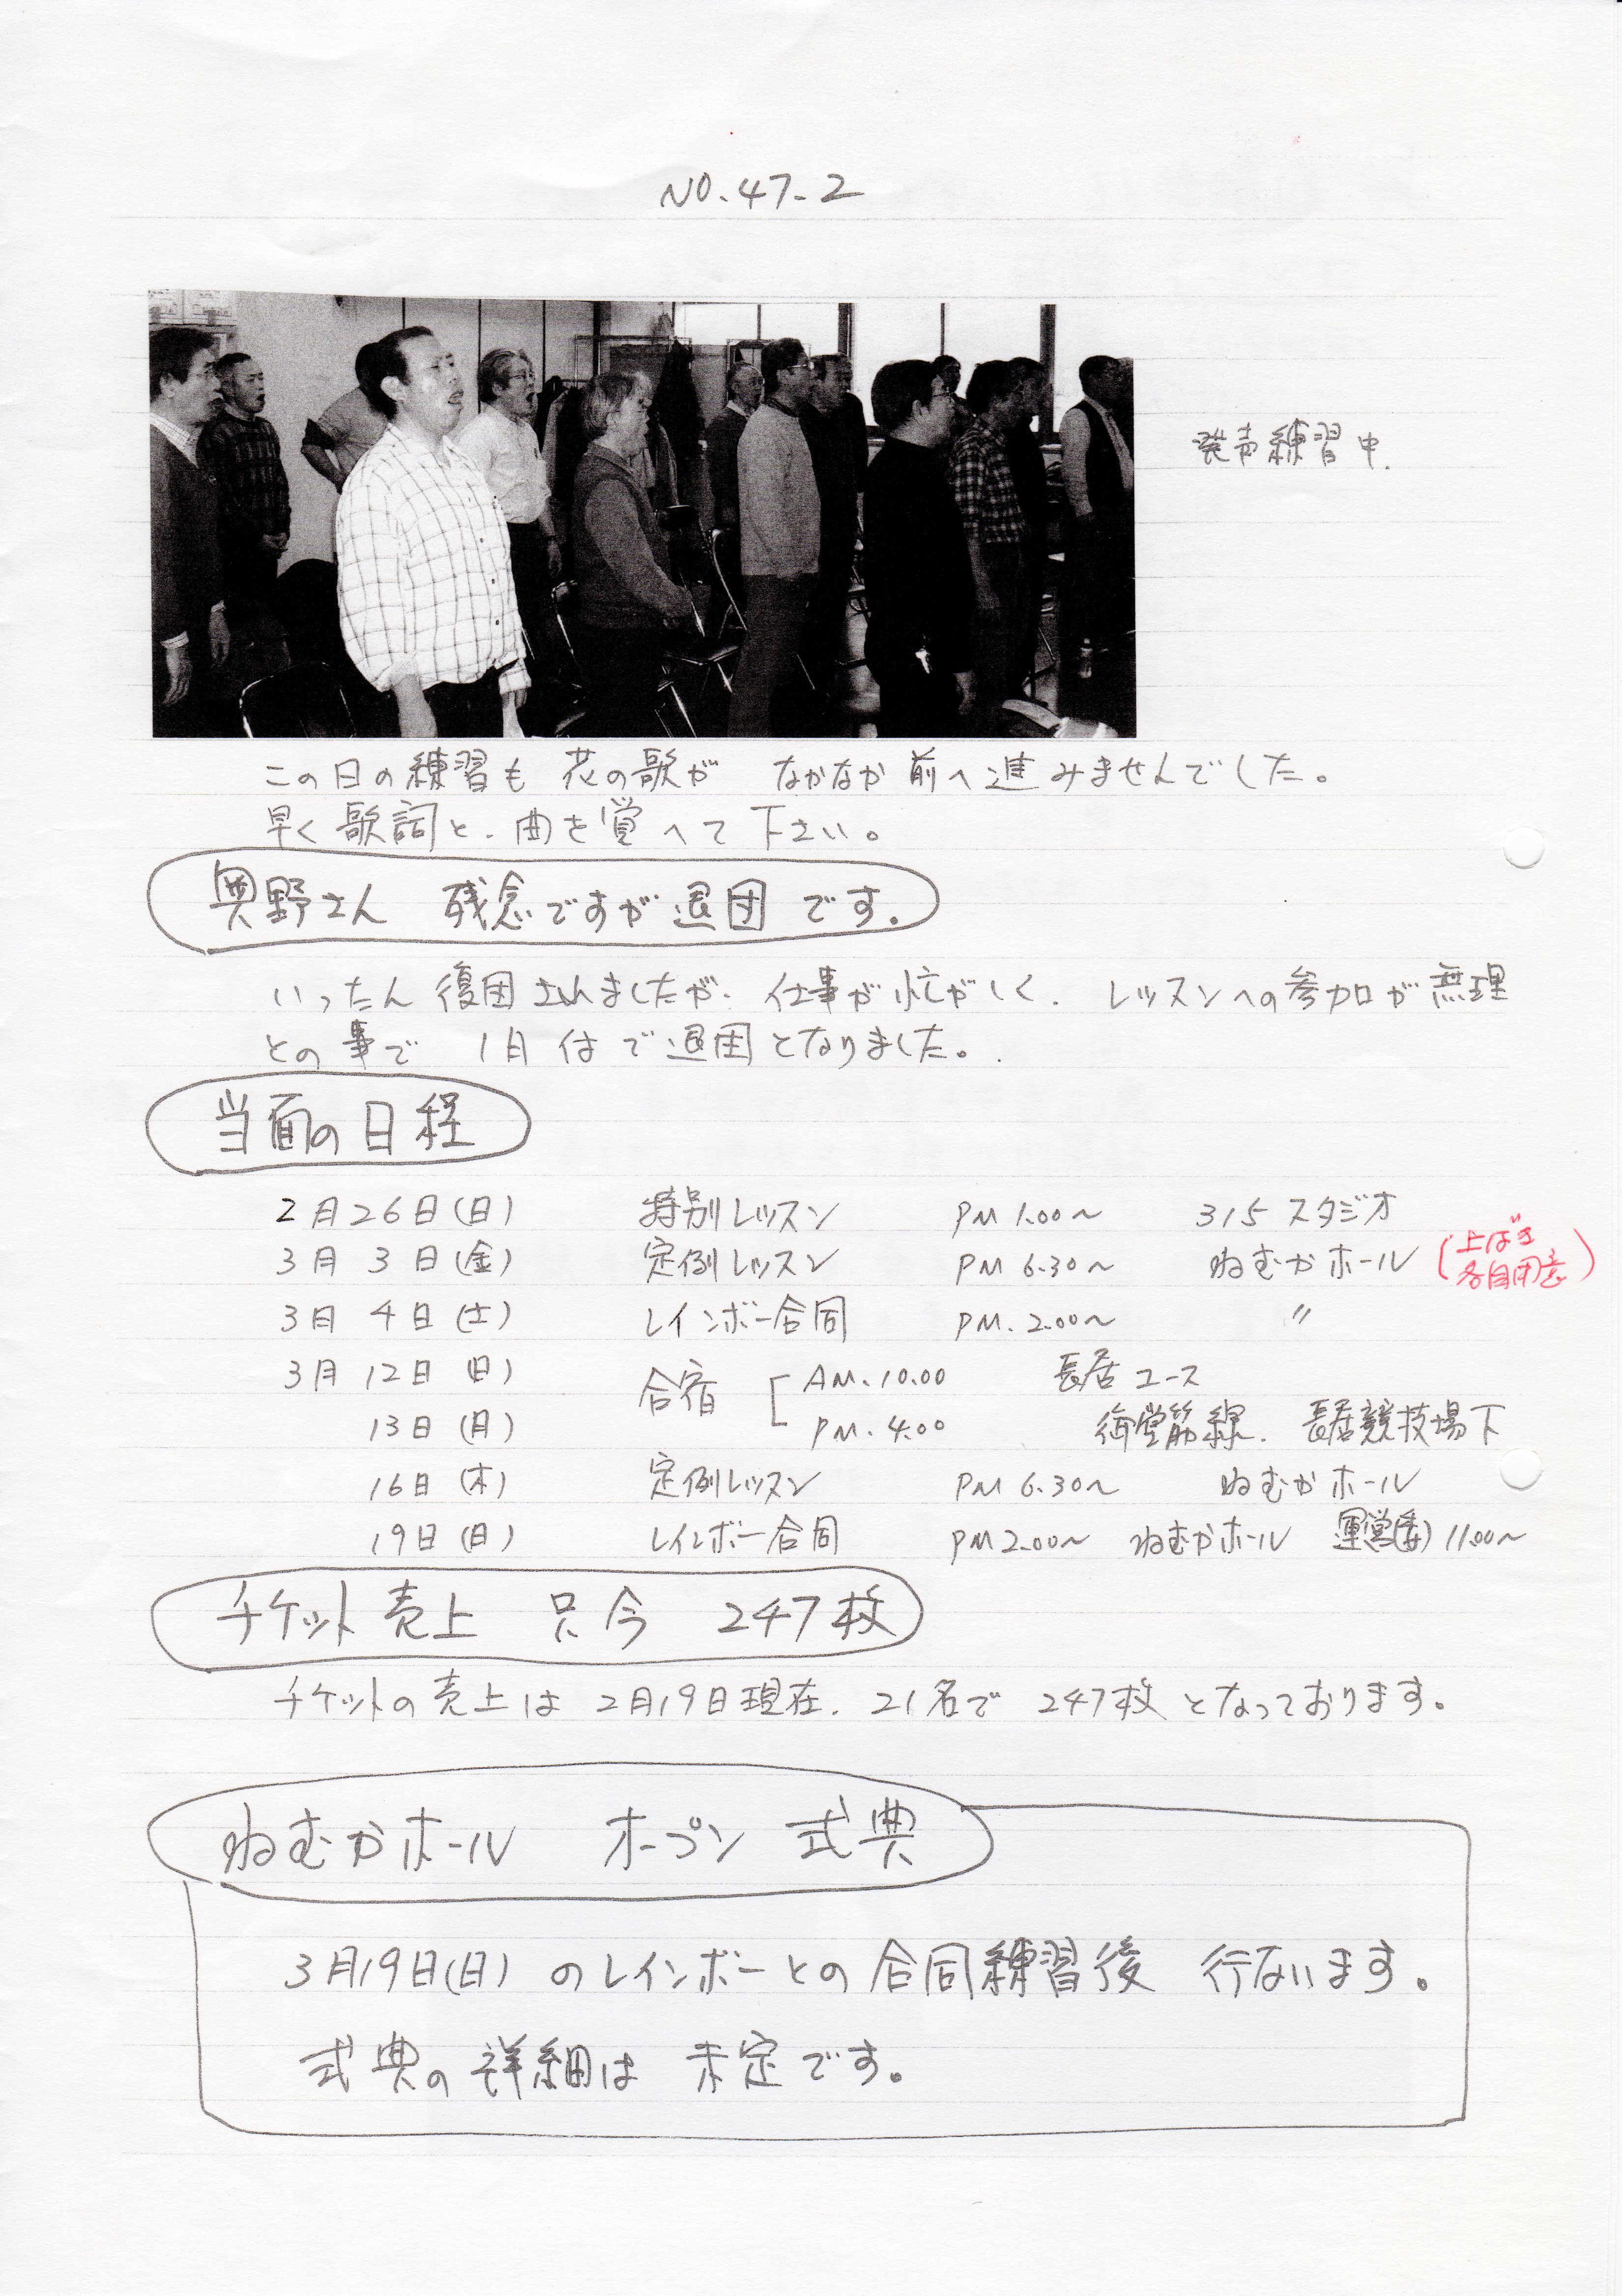 NO.47-2
発声練習中.
この日の練習も 花の歌が なかなか前へ進みませんでした。
早く歌詞と、曲を覚へて下さい。
奥野さん 残念ですが退団です.
いったん復団されましたが、仕事が忙がしく、レッスンへの参加が無理
との事で 1月付で退団となりました。
当面の日程
2月26日(日) 特別レッスン PM 1.00〜 315スタジオ
3月 3日(金) 定例レッスン PM 6.30〜 ねむかホール (上ばき 各自用意)
3月 4日(土) レインボー合同 PM. 2.00〜 〃
3月12日(日) 合宿 [ AM.10.00 長居ユース
13日(月) PM.4.00 御堂筋線. 長居競技場下
16日(木) 定例レッスン PM 6.30〜 ねむかホール
19日(日) レインボー合同 PM 2.00〜 ねむかホール 運営(委) 11.00〜
チケット売上 只今 247枚
チケットの売上は 2月19日現在. 21名で 247枚となっております。
ねむかホール オープン 式典
3月19日(日)のレインボーとの合同練習後 行ないます。
式典の詳細は 未定です。